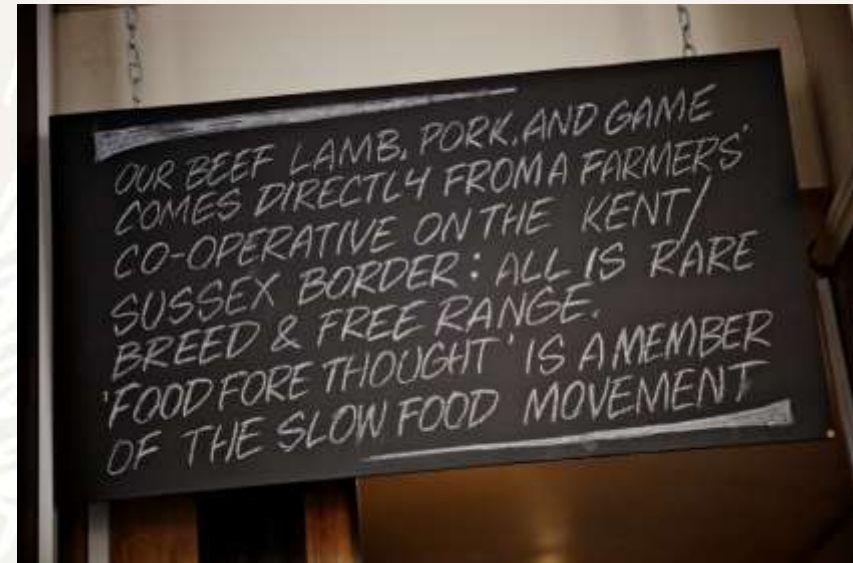 OUR BEEF LAMB, PORK, AND GAME
COMES DIRECTLY FROM A FARMERS'
CO-OPERATIVE ON THE KENT/
SUSSEX BORDER: ALL IS RARE
BREED & FREE RANGE.
'FOOD FORE THOUGHT' IS A MEMBER
OF THE SLOW FOOD MOVEMENT